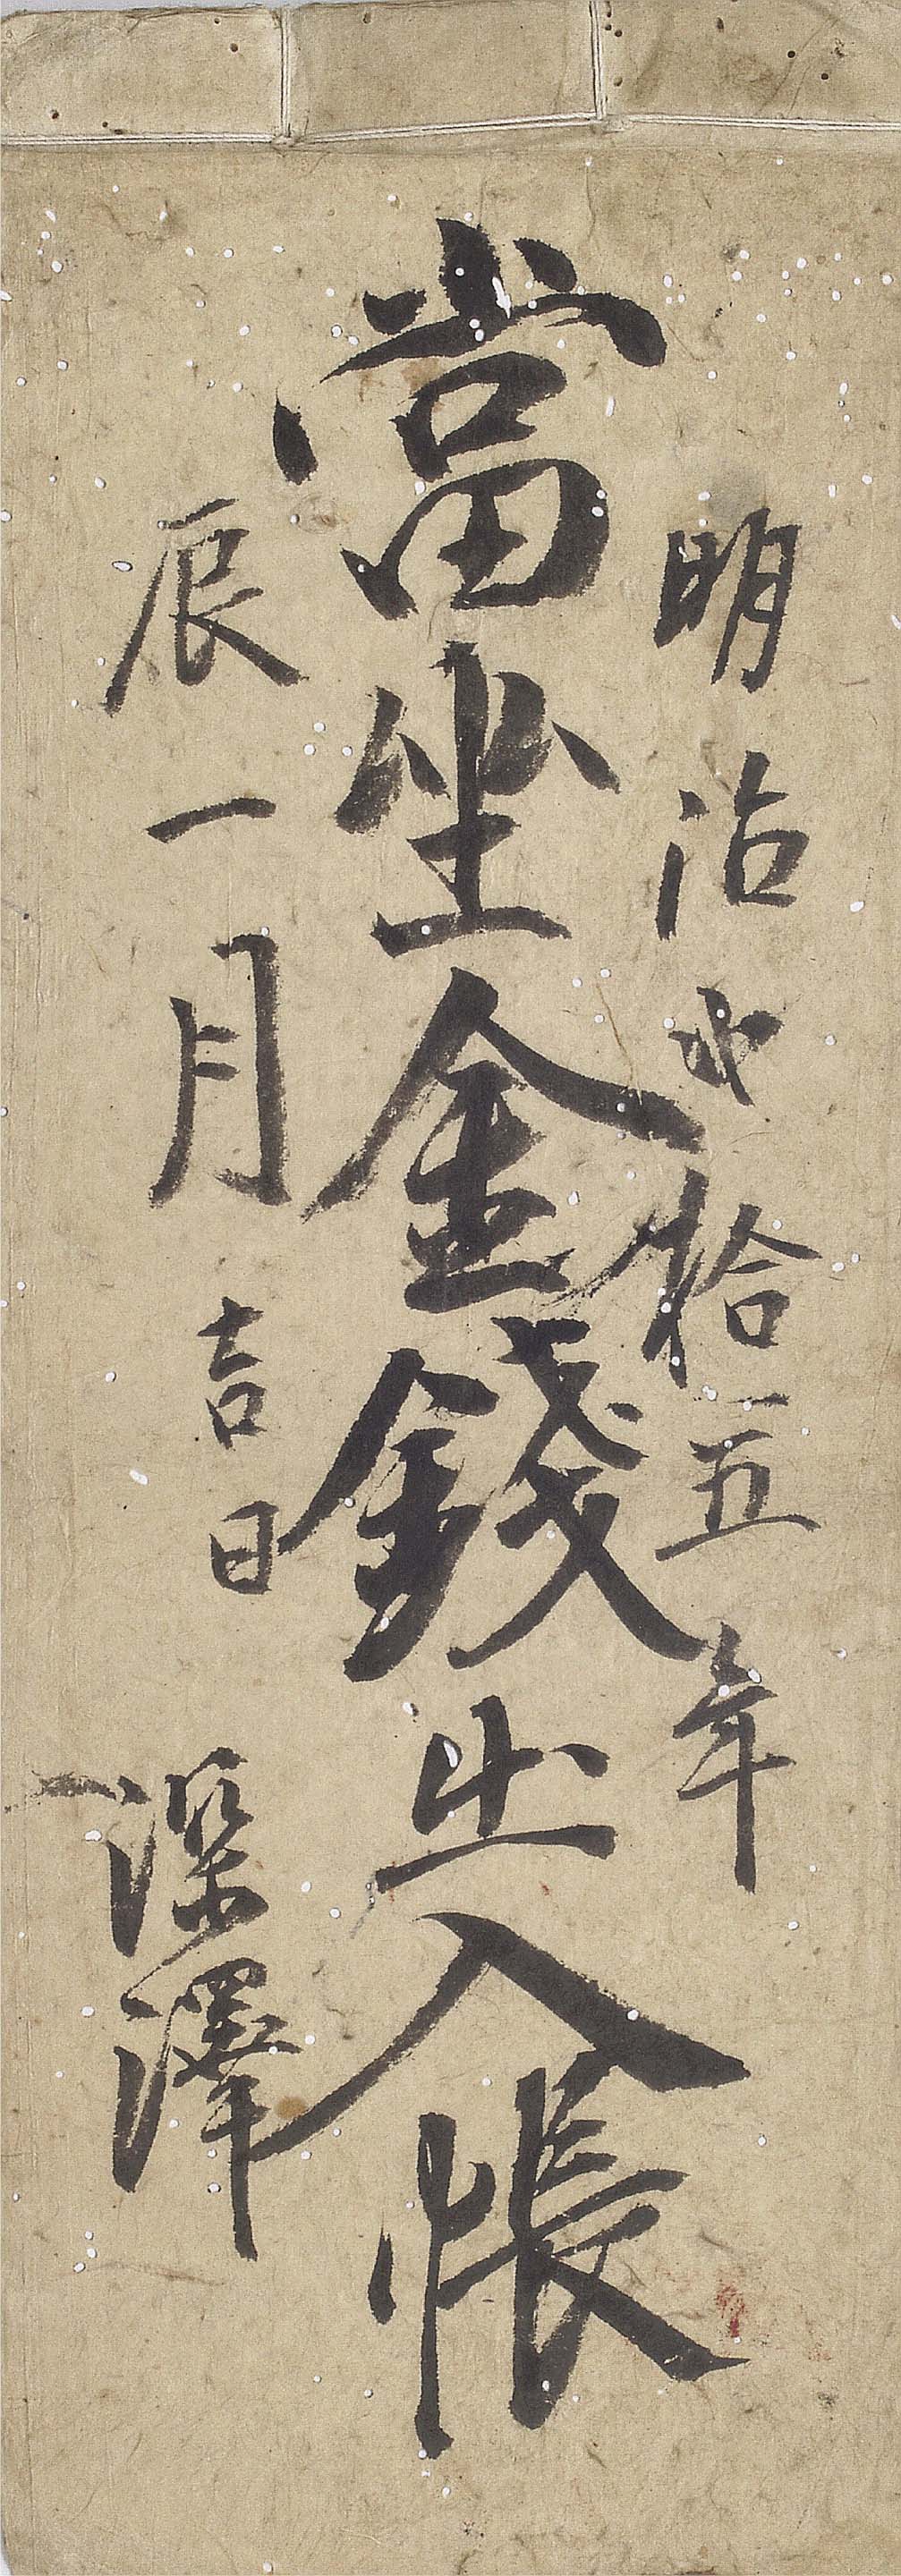 明治弐拾五年
當坐金錢出入帳
辰一月吉日
深澤